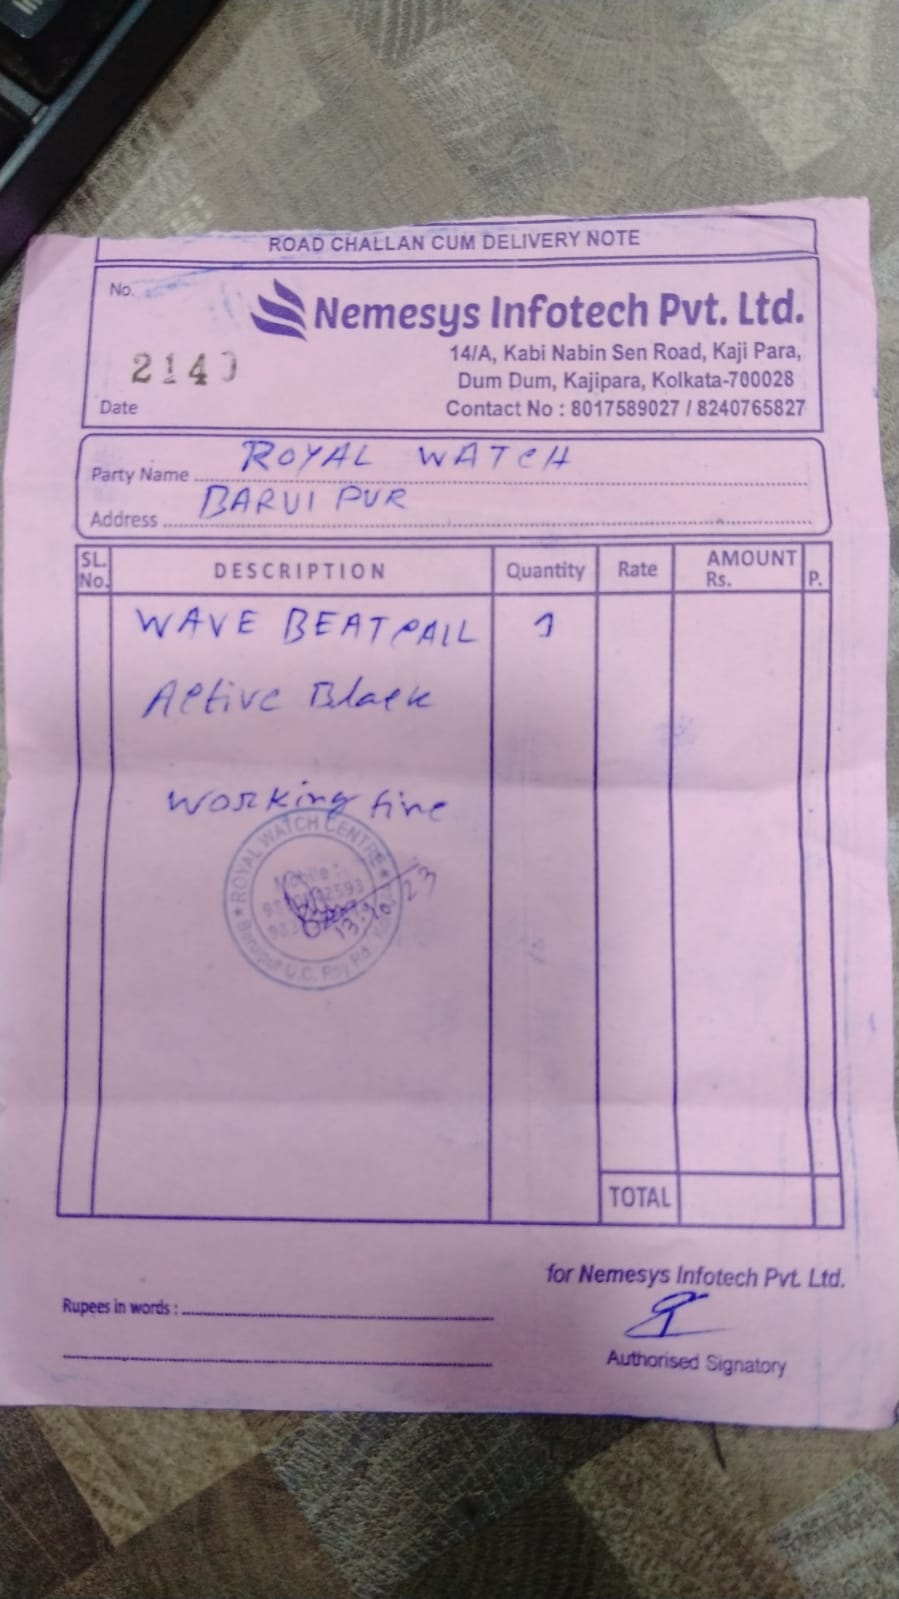 ROAD CHALLAN CUM DELIVERY NOTE
No.
Nemesys Infotech Pvt. Ltd.
214
14/A, Kabi Nabin Sen Road, Kaji Para,
Dum Dum, Kajipara, Kolkata-700028
Date
Contact No : 8017589027 / 8240765827
Party Name ROYAL WATCH
Address BARUIPUR
SL. No. DESCRIPTION Quantity Rate AMOUNT Rs. P.
WAVE BEATCALL 1
Active Black
Working fine
ROYAL WATCH CENTRE
Mobile :
13.10.23
Baruipur U.C. Roy Rd.
TOTAL
for Nemesys Infotech Pvt. Ltd.
Rupees in words :
Authorised Signatory